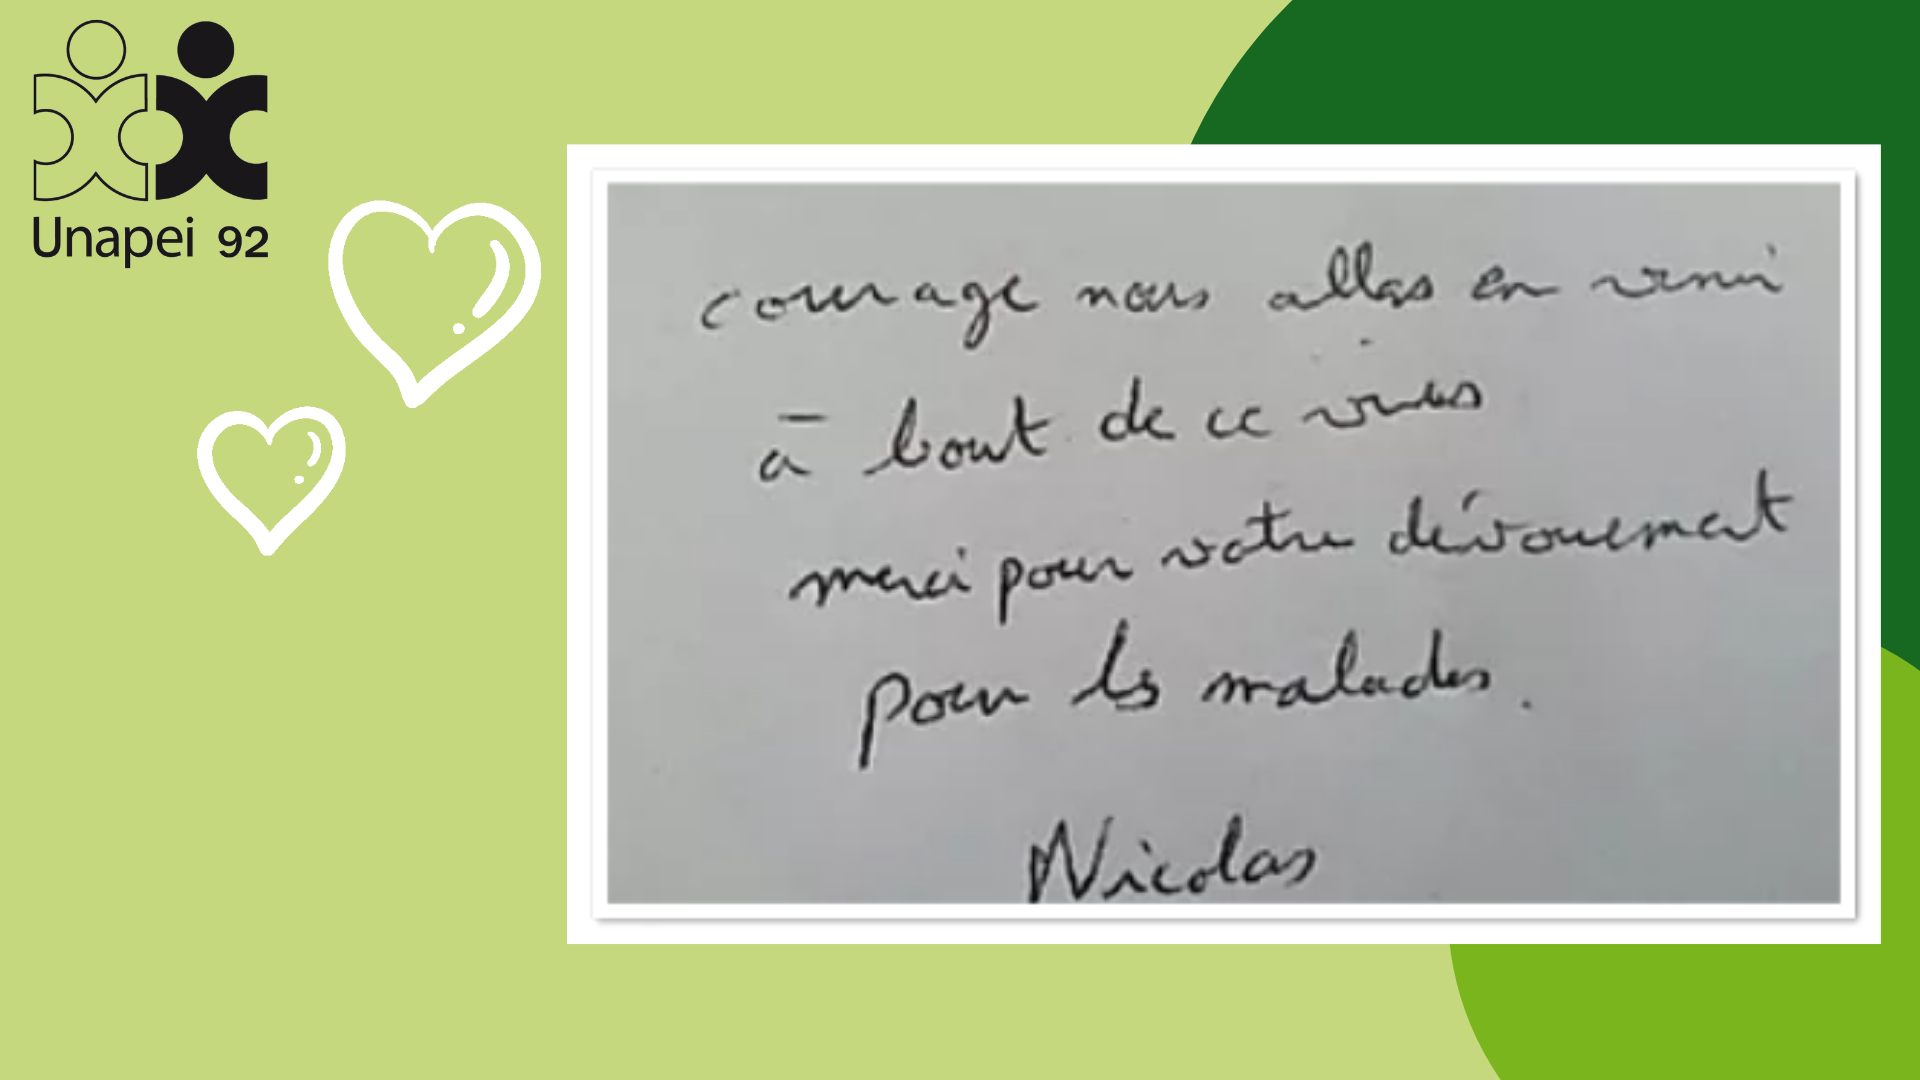 Unapei 92
courage nous allons en venir
à bout de ce virus
merci pour votre dévouement
pour les malades.
Nicolas